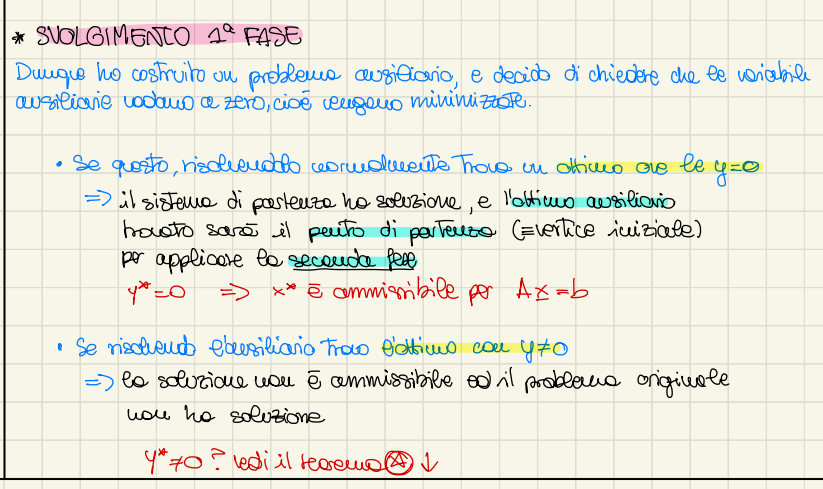 * SVOLGIMENTO 1ª FASE
Dunque ho costruito un problema ausiliario, e decido di chiedere che le variabili
ausiliarie vadano a zero, cioè vengano minimizzate.
• Se questo, risolvendolo normalmente trova un ottimo ove le y=0
=> il sistema di partenza ha soluzione, e l'ottimo ausiliario
trovato sarà il punto di partenza (≡vertice iniziale)
per applicare la seconda fase
y*=0 => x* è ammissibile per Ax=b
• Se risolvendo l'ausiliario trovo l'ottimo con y≠0
=> la soluzione non è ammissibile ed il problema originale
non ha soluzione
y*≠0 ? vedi il teorema ☆ ↓